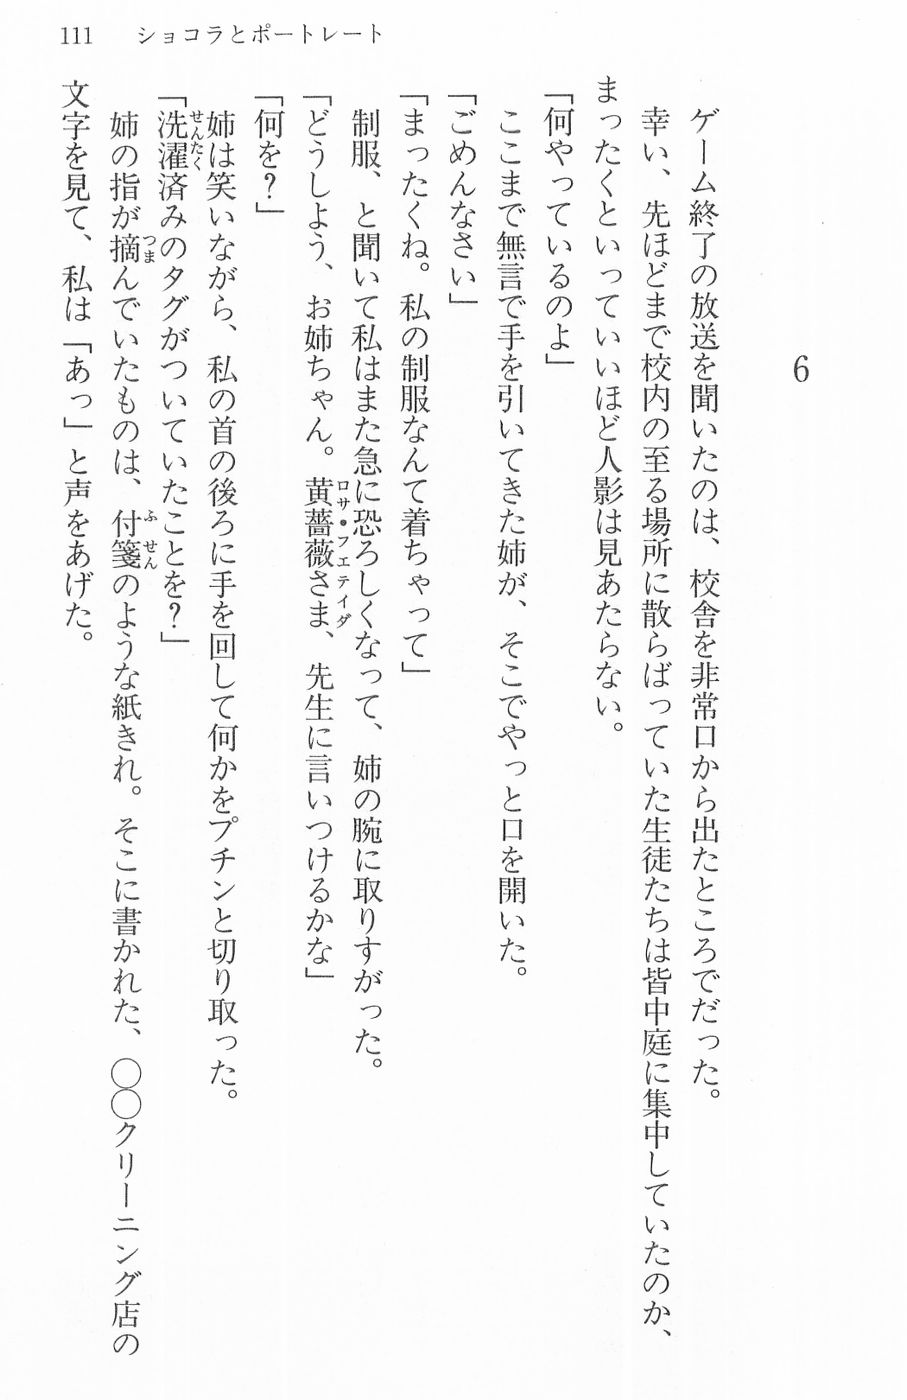 111 ショコラとポートレート
6
ゲーム終了の放送を聞いたのは、校舎を非常口から出たところでだった。
幸い、先ほどまで校内の至る場所に散らばっていた生徒たちは皆中庭に集中していたのか、
まったくといっていいほど人影は見あたらない。
「何やっているのよ」
ここまで無言で手を引いてきた姉が、そこでやっと口を開いた。
「ごめんなさい」
「まったくね。私の制服なんて着ちゃって」
制服、と聞いて私はまた急に恐ろしくなって、姉の腕に取りすがった。
「どうしよう、お姉ちゃん。黄薔薇さま、先生に言いつけるかな」
ロサ・フエテイダ
「何を？」
姉は笑いながら、私の首の後ろに手を回して何かをプチンと切り取った。
「洗濯済みのタグがついていたことを？」
せんたく
姉の指が摘んでいたものは、付箋のような紙きれ。そこに書かれた、○○クリーニング店の
つま ふせん
文字を見て、私は「あっ」と声をあげた。